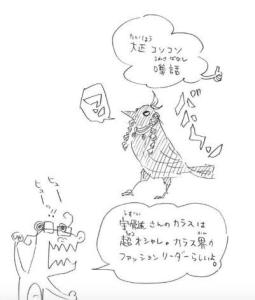 たいしょう
大正コソコソ
うわさばなし
噂話
ヒュー
ヒュー!!
宇髄さんのカラスは
超オシャレ。カラス界の
ファッションリーダーらしいよ。